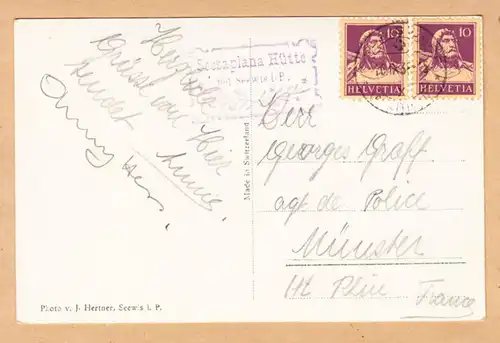 Herzliche
Grüsse von Hier
sendet
Annie
Scesaplana Hütte
bei Seewis i. P.
Made in Switzerland
Photo v. J. Hertner, Seewis i. P.
10
HELVETIA
10
HELVETIA
Herr
Georges Graff
agt de Police
Münster
Ht Rhin
France